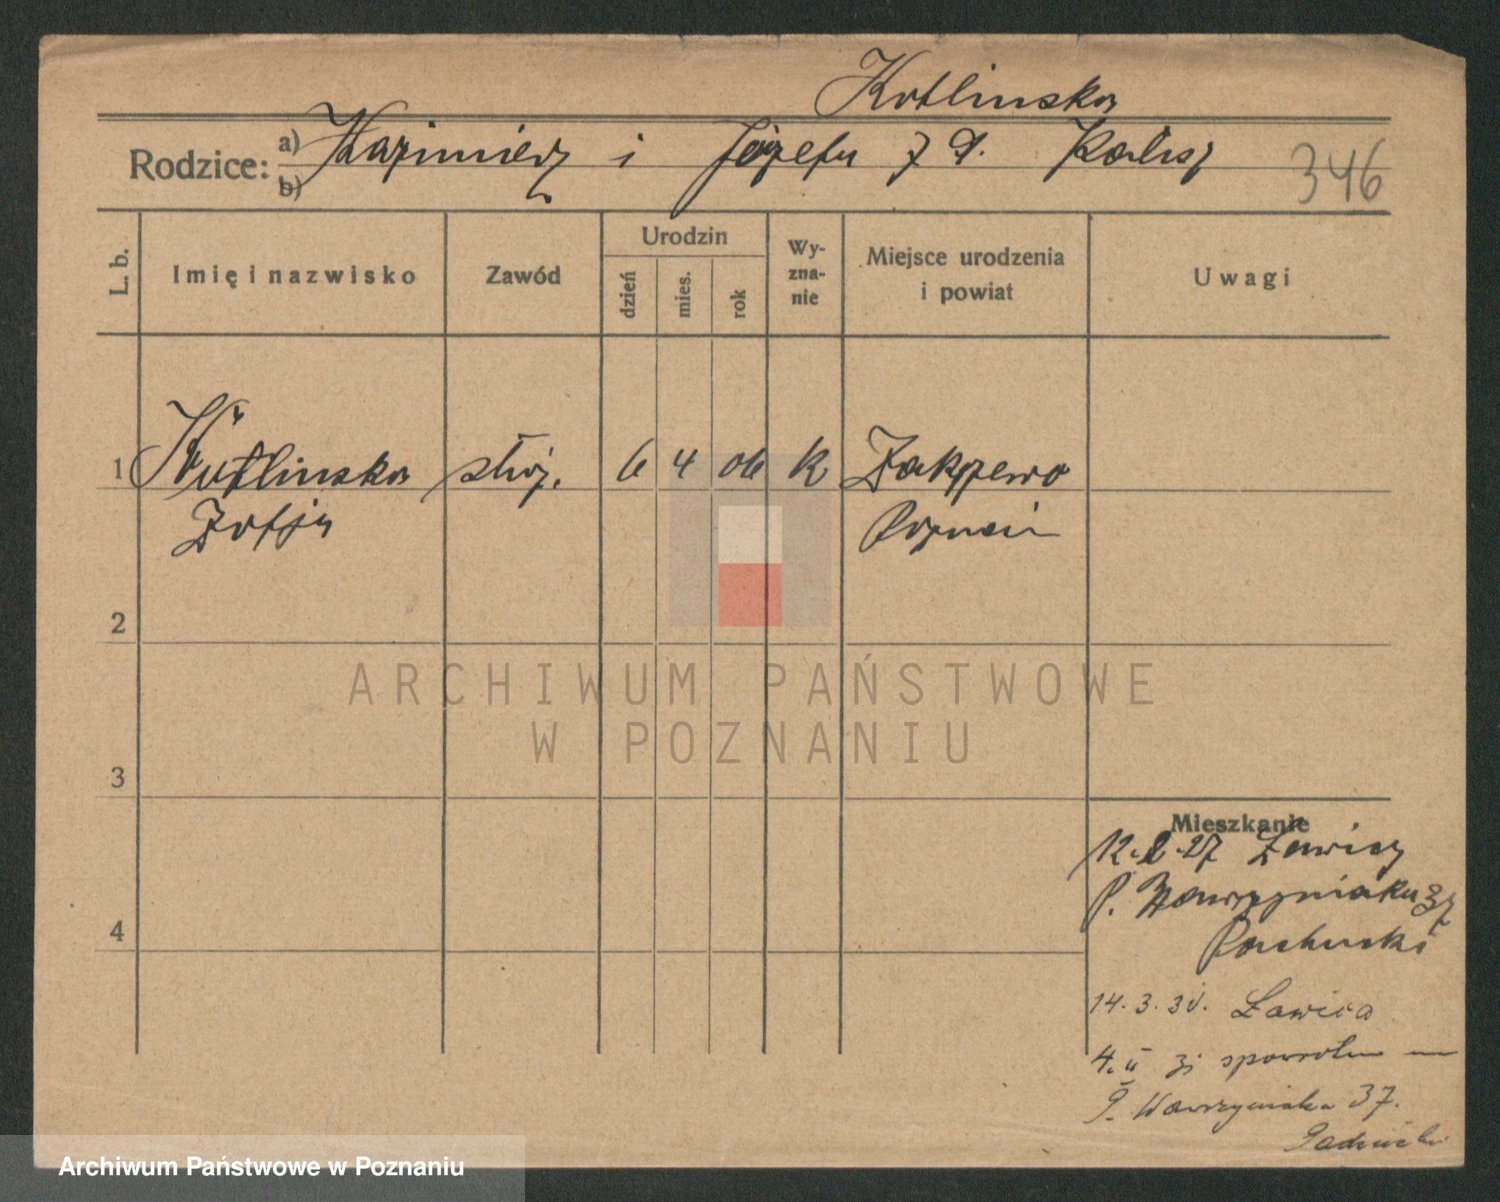 Kotlinska
Rodzice: a) Kazimierz i Józefa z d. Kalisz
b)
346
L. b.
Imię i nazwisko
Zawód
Urodzin
dzień
mies.
rok
Wy-
zna-
nie
Miejsce urodzenia
i powiat
Uwagi
1 Kotlinska służ. 6 4 06 k Zakrzewo
Zofja Poznań
2
3
4
Mieszkanie
12.2.27 Ławicy
P. Wawrzyniaka 37
14.3.30. Ławica
4.II 31 spowrotem
P. Wawrzyniaka 37.
ARCHIWUM PAŃSTWOWE
W POZNANIU
Archiwum Państwowe w Poznaniu